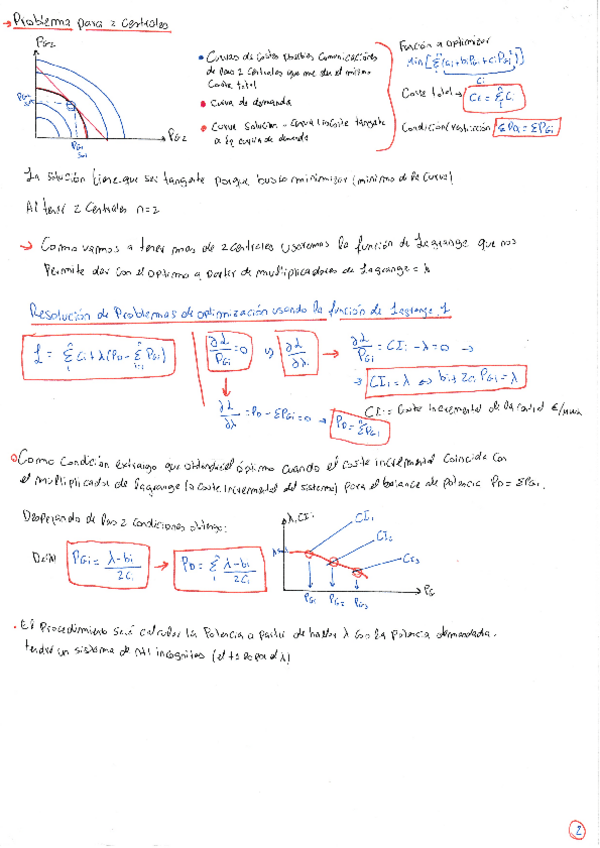 → Problema para 2 centrales
PG2
PG2
sol
PG1
sol
PG2
• Curvas de costes posibles combinaciones
de las 2 centrales que me dan el mismo
Coste total
• Curva de demanda
• Curva Solución - Curva isocoste tangente
a la curva de demanda
Función a optimizar
Min [Σ(ai + bi PGi + ci PGi²)]
Ci
Coste total → Ci = Σ Ci
Condición/restricción ΣPDi = ΣPGi
La solución tiene que ser tangente porque busco minimizar (mínimo de la curva)
Al tener 2 centrales n=2
→ Como vamos a tener mas de 2 centrales usaremos la función de Lagrange que nos
permite dar con el optimo a partir de multiplicadores de Lagrange = λ
Resolución de Problemas de optimización usando la función de Lagrange L
L = Σ Ci + λ(PD - Σ PGi)
∂L/PGi = 0 y ∂L/∂λ → ∂L/PGi = CIi - λ = 0 →
→ CIi = λ ⇔ bi + 2ci PGi = λ
∂L/∂λ = PD - ΣPGi = 0 → PD = ΣPGi
CIi = Coste Incremental de la central €/MWh
• Como condición extraigo que obtendré el óptimo cuando el coste incremental coincida con
el multiplicador de Lagrange (o coste incremental del sistema) para el balance de potencia PD = ΣPGi.
Despejando de las 2 condiciones obtengo:
PGi = λ - bi / 2ci → PD = Σ λ - bi / 2ci
λ, CIi
CI1
CI2
CI3
PG1 PG2 PG3
PG
• El procedimiento será calcular la Potencia a partir de hallar λ con la potencia demandada.
tendré un sistema de n+1 incognitas (el +1 es por el λ)
2